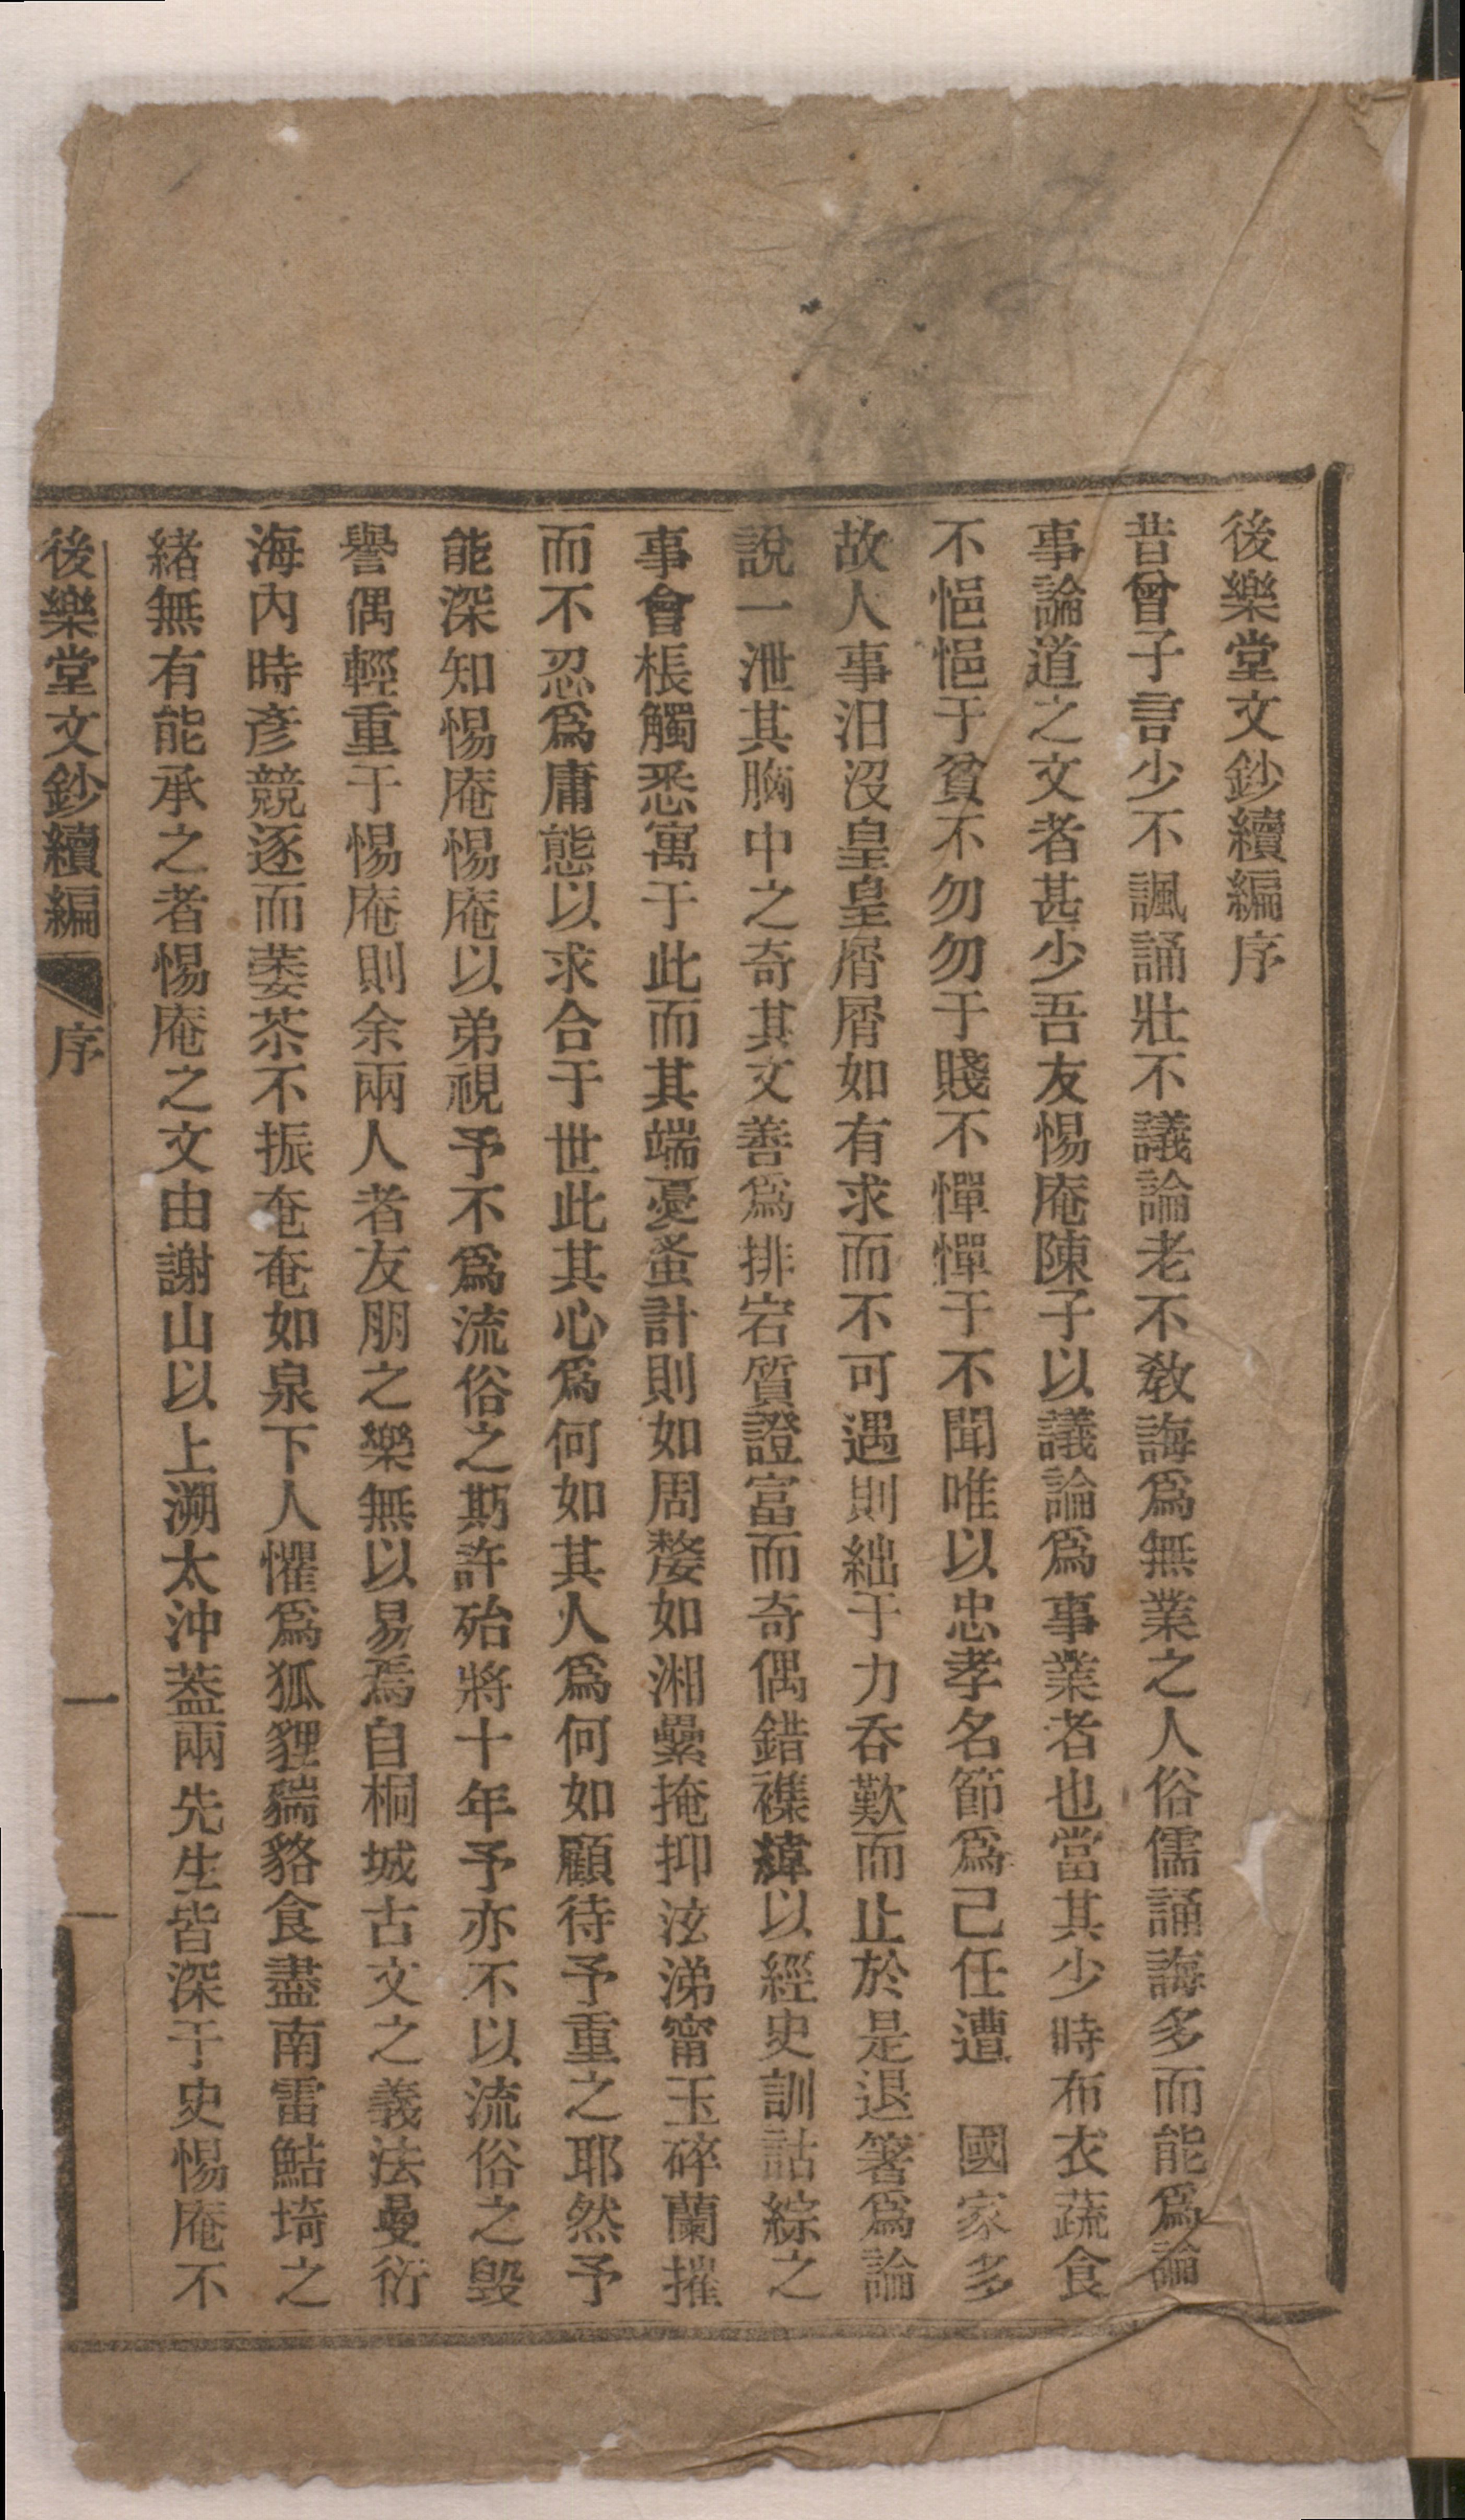 後樂堂文鈔續編序
昔曾子言少不諷誦壯不議論老不敎誨爲無業之人俗儒誦誨多而能爲論
事論道之文者甚少吾友惕庵陳子以議論爲事業者也當其少時布衣蔬食
不悒悒于貧不勿勿于賤不憚憚于不聞唯以忠孝名節爲己任遭　國家多
故人事汨沒皇皇屑屑如有求而不可遇則絀于力呑歎而止於是退箸爲論
說一泄其胸中之奇其文善爲排宕質證富而奇偶錯襍緯以經史訓詁綜之
事會棖觸悉寓于此而其端憂蚤計則如周嫠如湘纍掩抑泫涕甯玉碎蘭摧
而不忍爲庸態以求合于世此其心爲何如其人爲何如顧待予重之耶然予
能深知惕庵惕庵以弟視予不爲流俗之期許殆將十年予亦不以流俗之毀
譽偶輕重于惕庵則余兩人者友朋之樂無以易焉自桐城古文之義法曼衍
海內時彥競逐而萎苶不振奄奄如泉下人懼爲狐貍貒貉食盡南雷鮚埼之
緒無有能承之者惕庵之文由謝山以上溯太沖葢兩先生皆深于史惕庵不
後樂堂文鈔續編　序　一